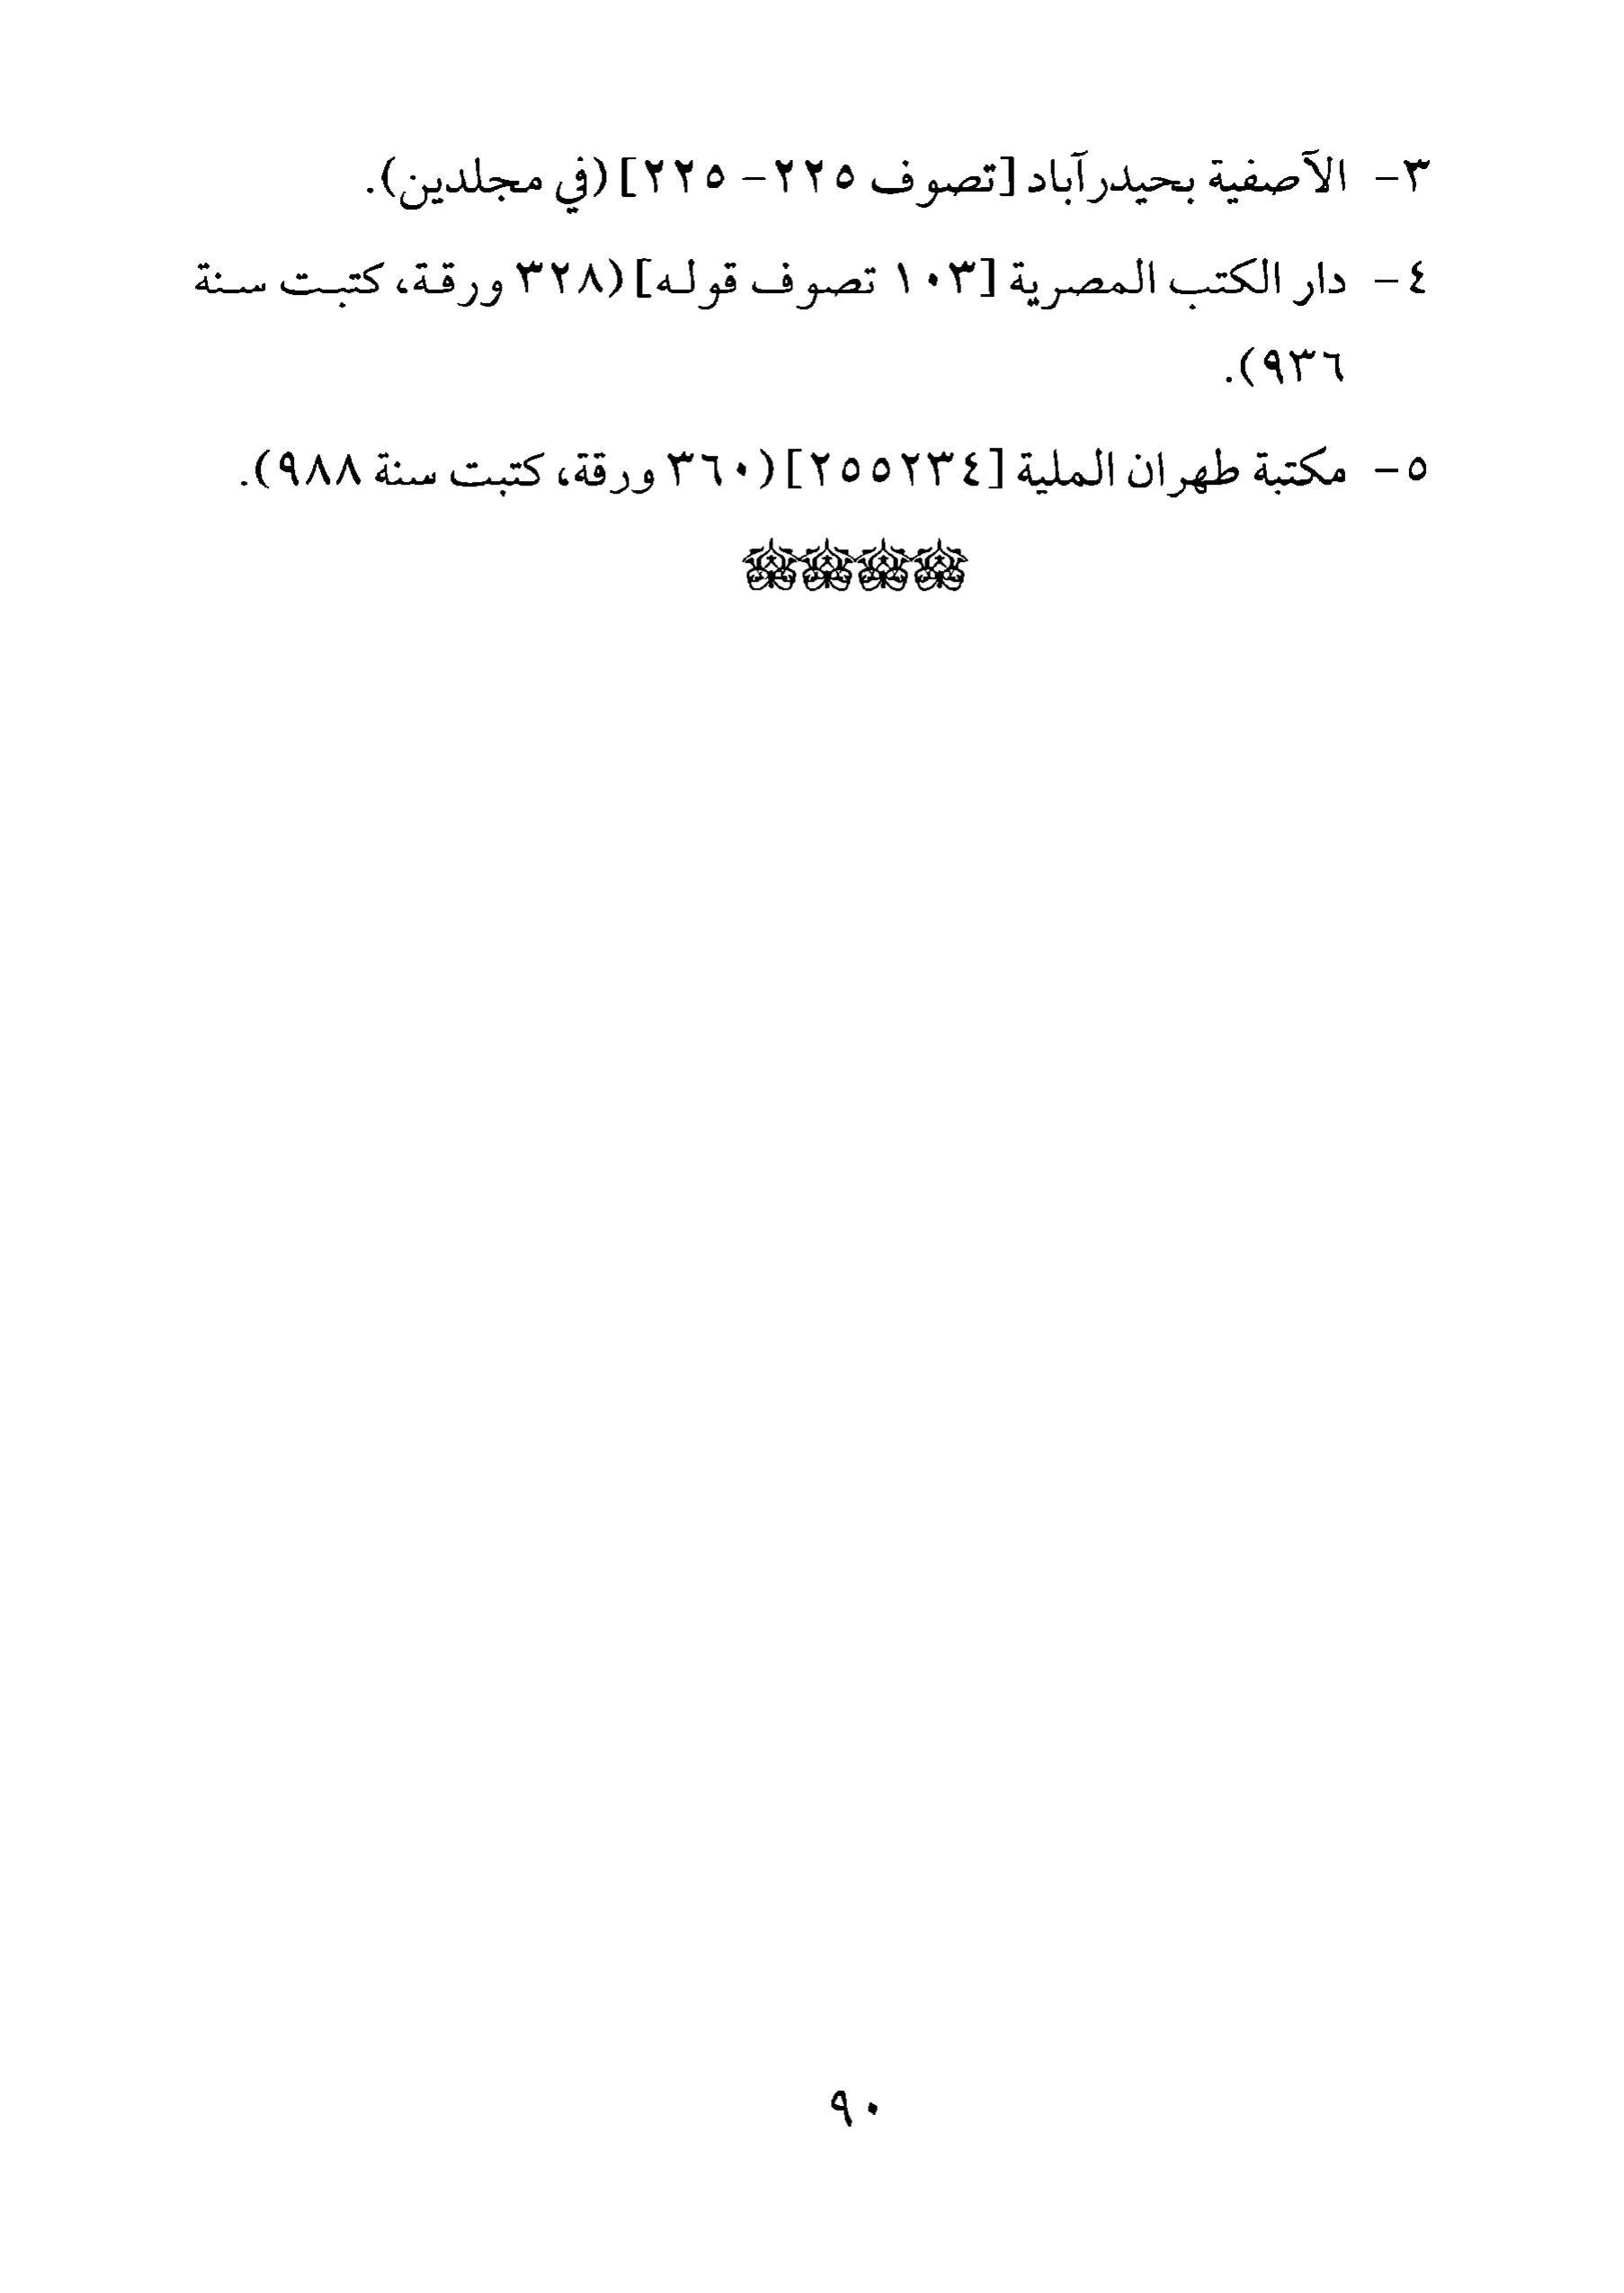 ٣- الآصفية بحيدرآباد [تصوف ٢٢٥- ٢٢٥] (في مجلدين).
٤- دار الكتب المصرية [١٠٣ تصوف قوله] (٣٢٨ ورقة، كتبت سنة
٩٣٦).
٥- مكتبة طهران الملية [٢٥٥٢٣٤] (٣٦٠ ورقة، كتبت سنة ٩٨٨).
٩٠